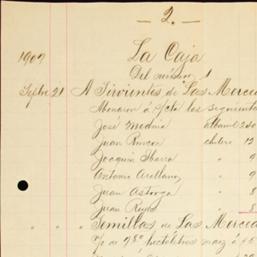 — 2. —
1907
La Caja
Del número 1
Septbre 21 A Sirvientes de Las Merced
Abonaron á /cta los siguiente
José Medina albañil
Juan Rincon chilero 12
Joaquin Ibarra " 9
Antonio Arellano " 9
Juan Astorga " 8
Juan Rojas " 8
" " Semillas de Las Merced
de 98º hectolitros maiz á